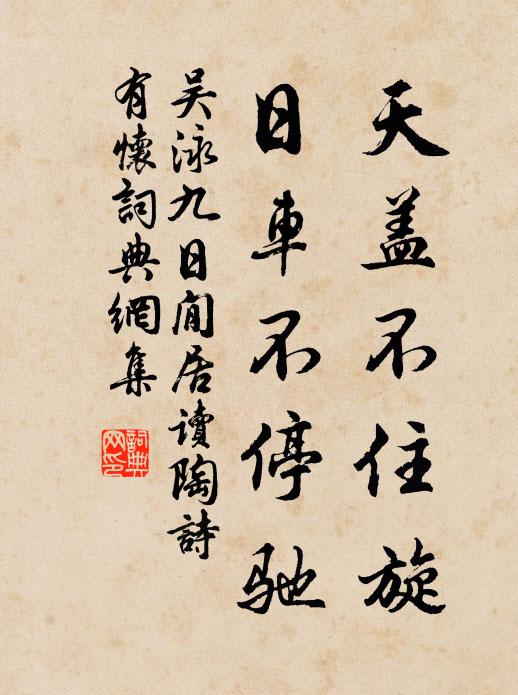 天盖不住旋
日車不停馳
吴泳九日閒居读陶詩
有懷詞典網集
詞典網印